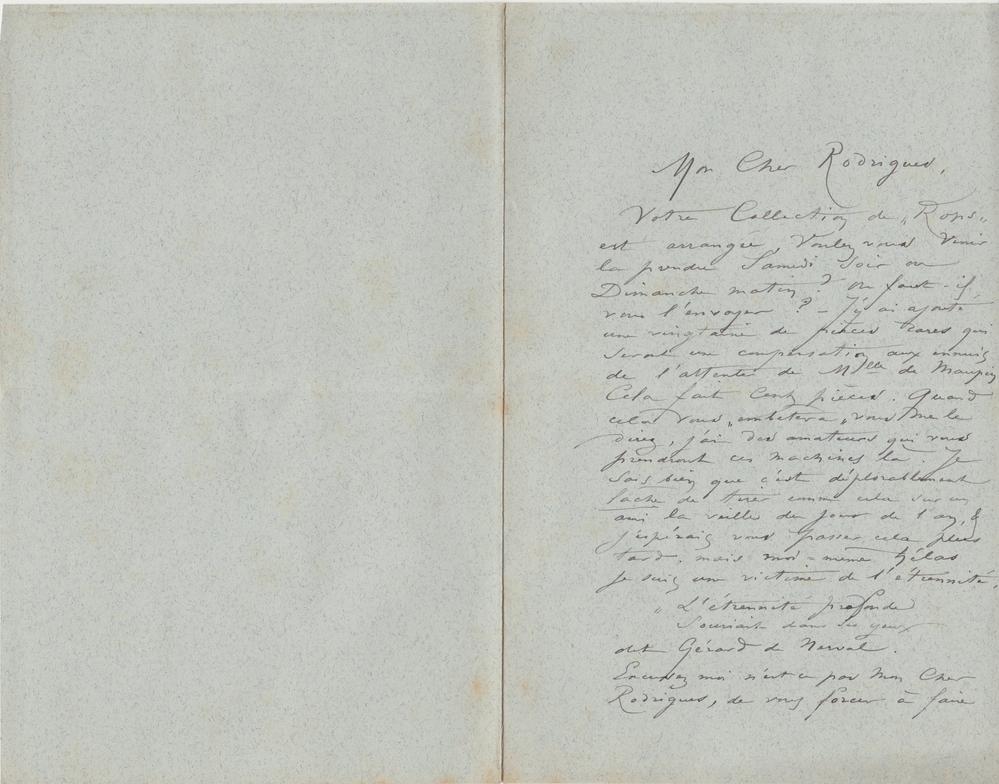 Mon Cher Rodrigues,
Votre Collection de „Rops„
est arrangée, Voulez vous venir
la prendre Samedi Soir ou
Dimanche matin ? ou faut-il
vous l'envoyer ? – J'y ai ajouté
une vingtaine de pièces rares qui
seront une compensation aux ennuis
de l'attente de Mlle de Maupin
Cela fait Cent pièces. Quand
cela vous „embetera„ vous me le
direz, j'ai des amateurs qui vous
prendront ces machines là. Je
Sais bien que c'est déplorablement
lache de tirer comme cela sur un
ami la veille du Jour de l'an, &
j'espérais vous passer cela plus
tard, mais moi-même hélas
je suis une victime de l'étrennité,
„ L'étrennité profonde
Souriait dans ses yeux
dit Gérard de Nerval.
Excusez moi n'est ce pas Mon Cher
Rodrigues, de vous forcer à faire